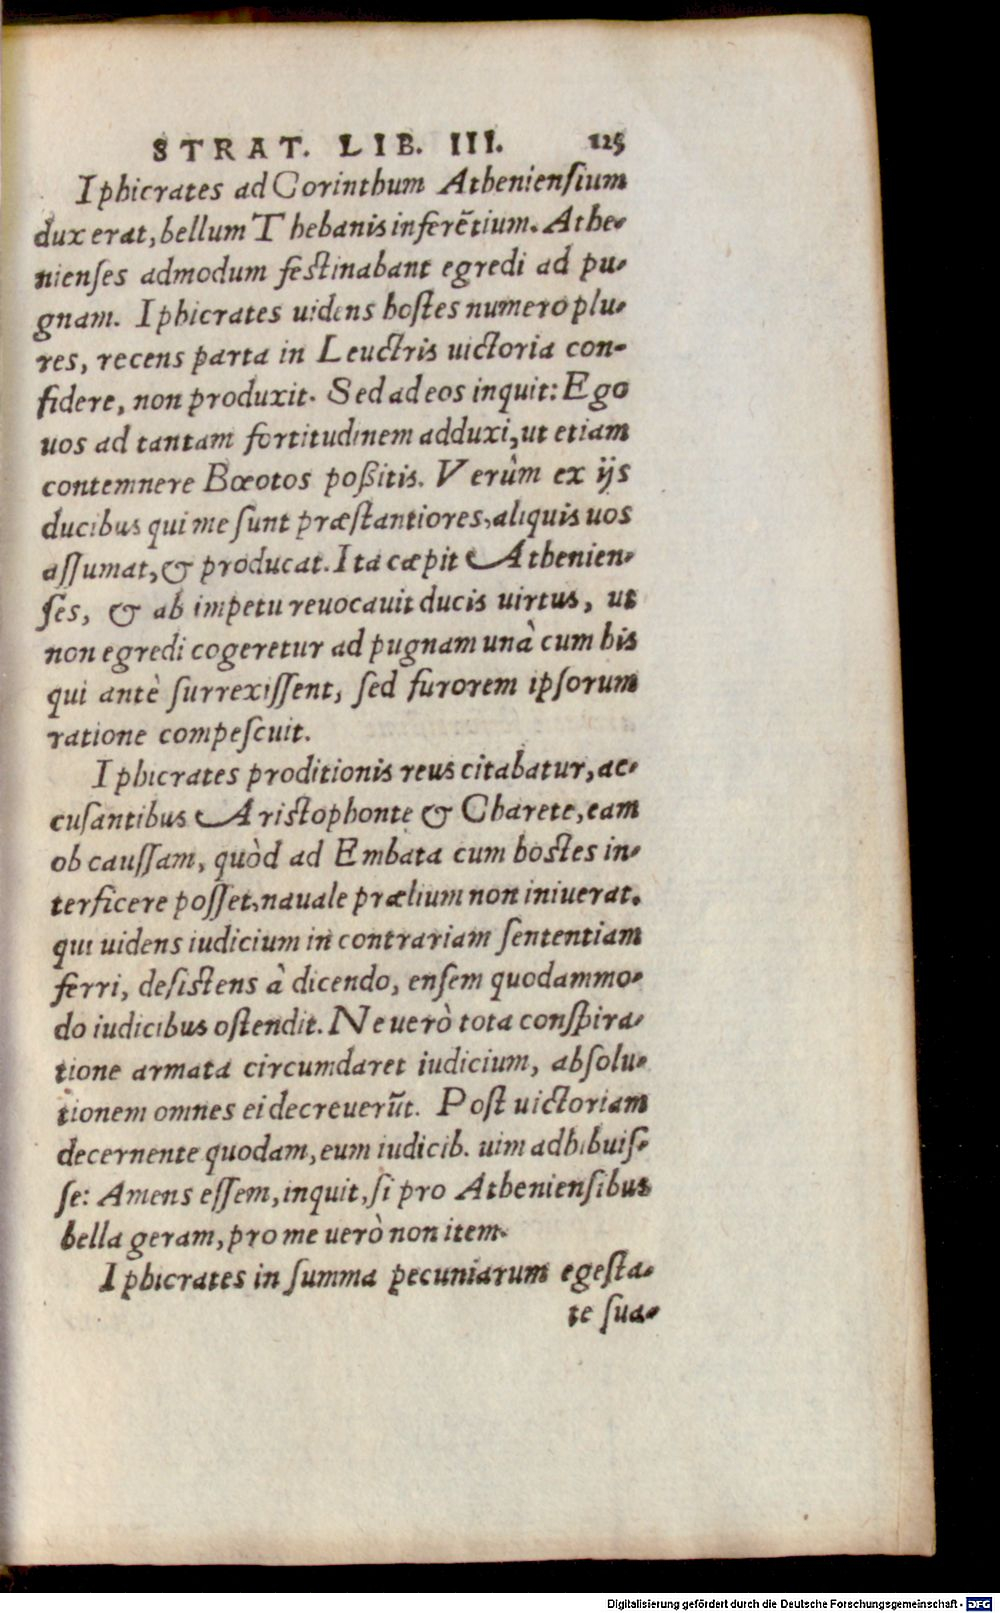 STRAT. LIB. III. 125
Iphicrates ad Corinthum Atheniensium
dux erat, bellum Thebanis inferētium. Athe-
nienses admodum festinabant egredi ad pu-
gnam. Iphicrates uidens hostes numero plu-
res, recens parta in Leuctris uictoria con-
fidere, non produxit. Sed ad eos inquit: Ego
uos ad tantam fortitudinem adduxi, ut etiam
contemnere Bœotos poßitis. Verùm ex ijs
ducibus qui me sunt præstantiores, aliquis uos
assumat, & producat. Ita cæpit Athenien-
ses, & ab impetu reuocauit ducis uirtus, ut
non egredi cogeretur ad pugnam unà cum his
qui antè surrexissent, sed furorem ipsorum
ratione compescuit.
Iphicrates proditionis reus citabatur, ac-
cusantibus Aristophonte & Charete, eam
ob caussam, quòd ad Embata cum hostes in-
terficere posset, nauale prælium non iniuerat.
qui uidens iudicium in contrariam sententiam
ferri, desistens à dicendo, ensem quodammo-
do iudicibus ostendit. Ne uerò tota conspira-
tione armata circumdaret iudicium, absolu-
tionem omnes ei decreuerūt. Post uictoriam
decernente quodam, eum iudicib. uim adhibuis-
se: Amens essem, inquit, si pro Atheniensibus
bella geram, pro me uerò non item.
Iphicrates in summa pecuniarum egesta-
te sua-
Digitalisierung gefördert durch die Deutsche Forschungsgemeinschaft - DFG